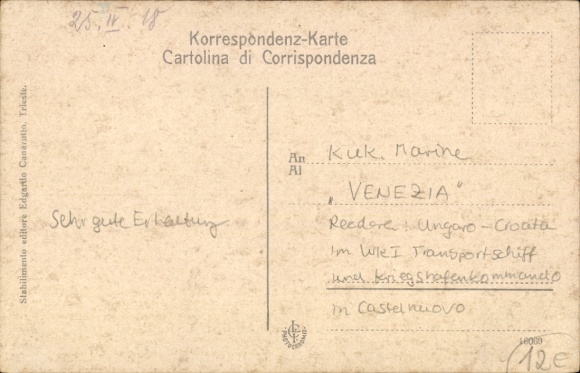 25. IV. 18
Korrespondenz-Karte
Cartolina di Corrispondenza
Stabilimento editore Edgardo Canarutto, Trieste.
Sehr gute Erhaltung
An
Al
K.u.K. Marine
"VENEZIA"
Reederei: Ungaro-Croata
im WK I Transportschiff
und Kriegshafenkommando
in Castelnuovo
PHOTOCHROMIE
12€